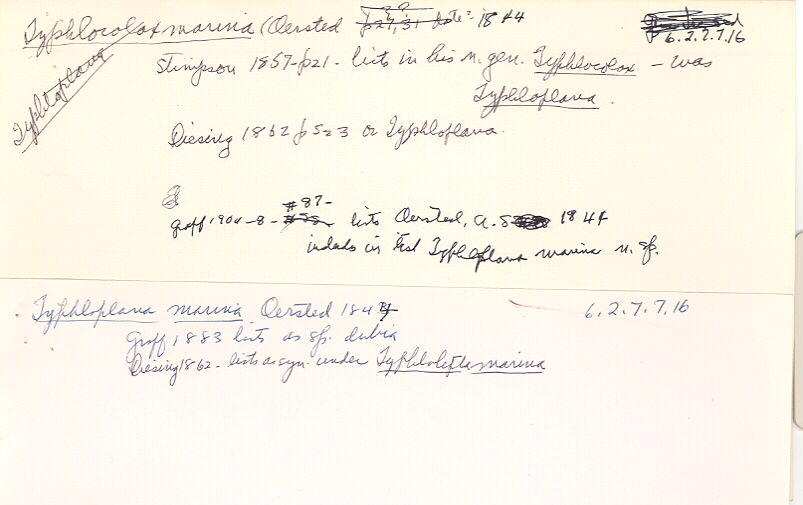 Typhlocolax marina (Oersted p27,31 date? 1844
6.2.7.7.16
Typhloplana
Stimpson 1857-p21- lists in his n. gen. Typhlocolax - was
Typhloplana.
Diesing 1862 p523 as Typhloplana.
#87-
Graff 1904-8- lists Oersted, A.S. 1844
includes in text Typhloplana marina n. sp.
Typhloplana marina Oersted 1844 6.2.7.7.16
Graff 1883 lists as sp. dubia
Diesing 1862- lists as syn. under Typhlolepta marina